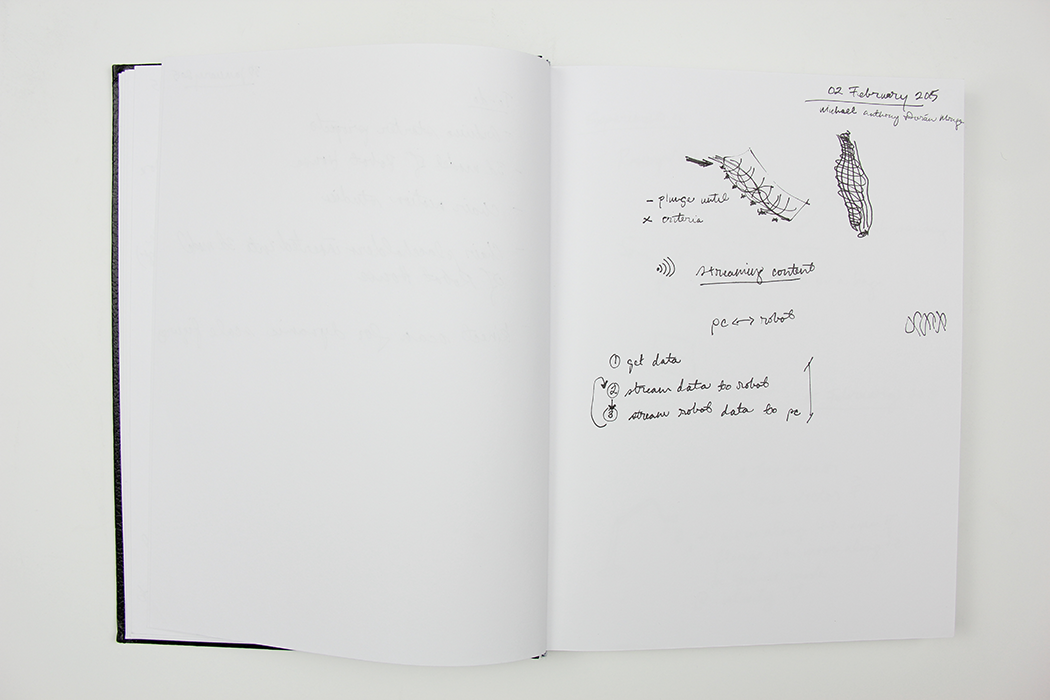 02 February 2015
Michael Anthony Durán Monge
- plunge until
x criteria
streaming content
pc ↔ robot
① get data
② stream data to robot
③ stream robot data to pc